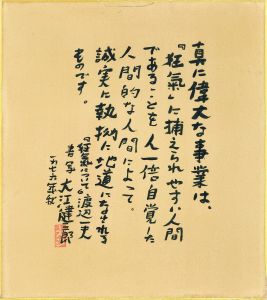 真に偉大な事業は、
『狂氣』に捕えられやすい人間
であることを人一倍自覚した
人間的な人間によって、
誠実に執拗に地道になされる
ものです。
『狂氣について』渡辺一夫
書写 大江健三郎
一九七六年秋